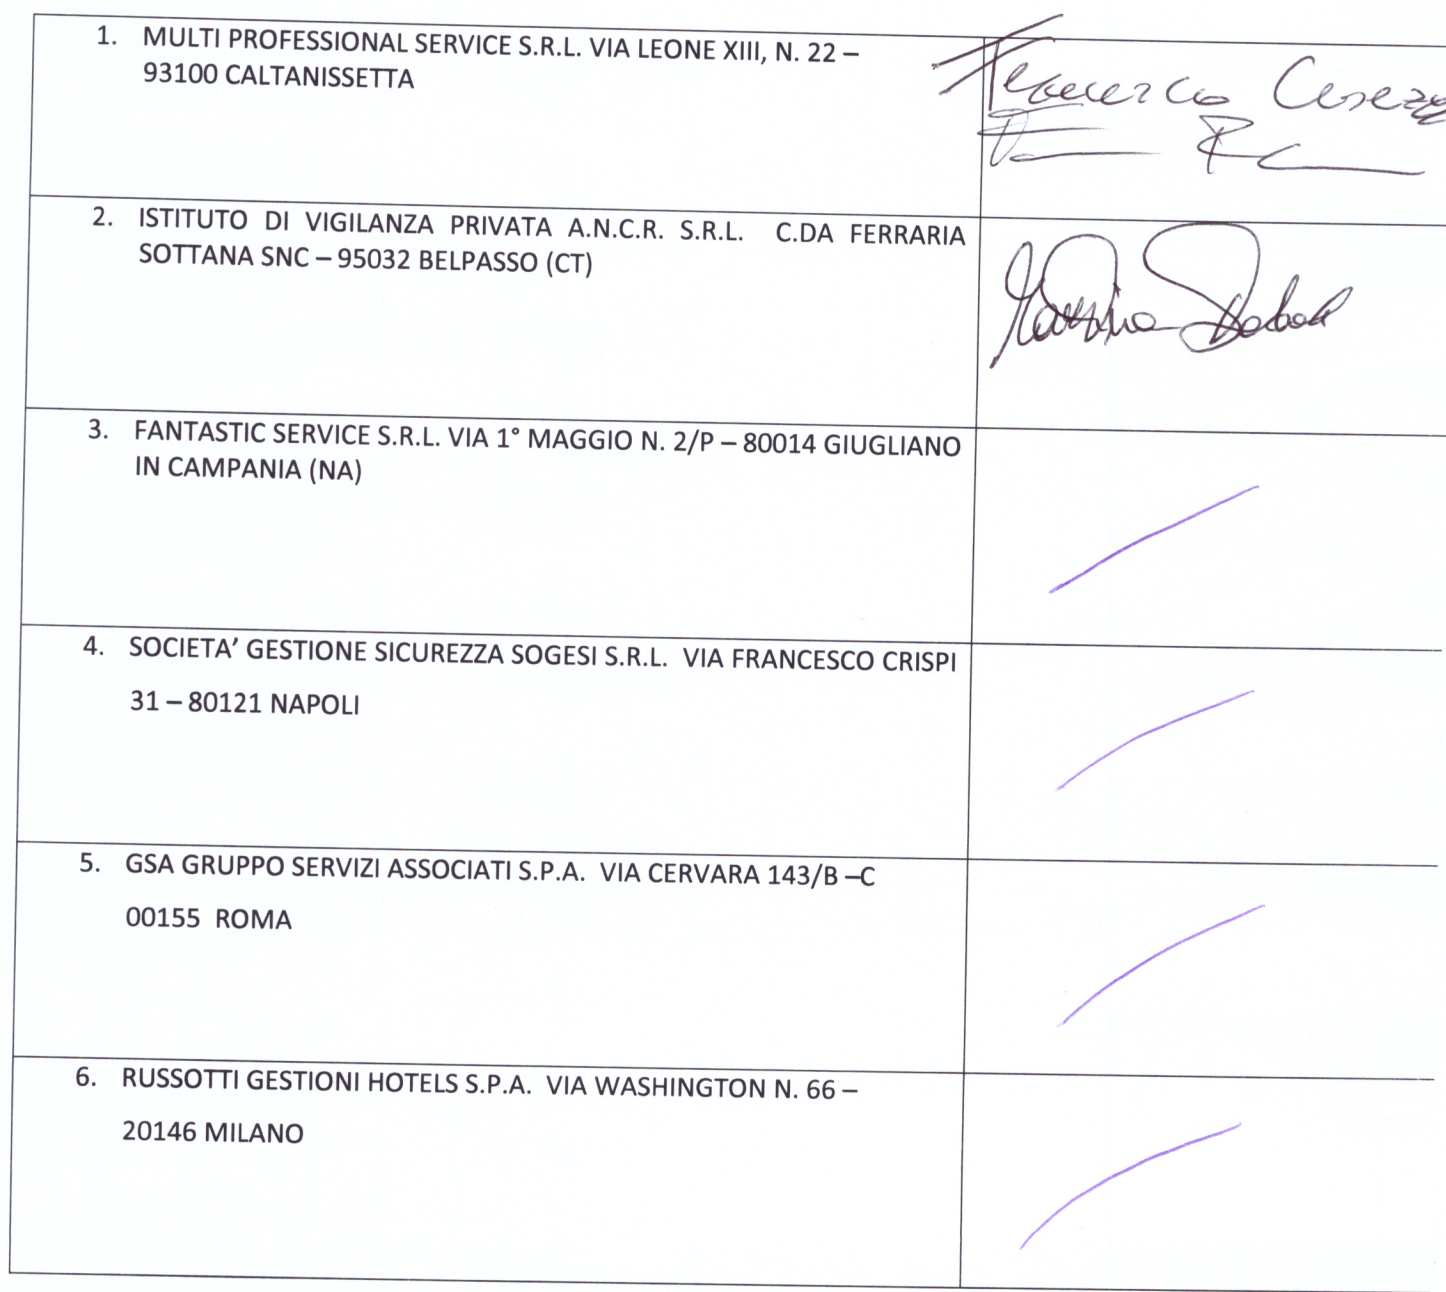 1. MULTI PROFESSIONAL SERVICE S.R.L. VIA LEONE XIII, N. 22 –
93100 CALTANISSETTA
Francesco
2. ISTITUTO DI VIGILANZA PRIVATA A.N.C.R. S.R.L. C.DA FERRARIA
SOTTANA SNC – 95032 BELPASSO (CT)
3. FANTASTIC SERVICE S.R.L. VIA 1° MAGGIO N. 2/P – 80014 GIUGLIANO
IN CAMPANIA (NA)
4. SOCIETA’ GESTIONE SICUREZZA SOGESI S.R.L. VIA FRANCESCO CRISPI
31 – 80121 NAPOLI
5. GSA GRUPPO SERVIZI ASSOCIATI S.P.A. VIA CERVARA 143/B –C
00155 ROMA
6. RUSSOTTI GESTIONI HOTELS S.P.A. VIA WASHINGTON N. 66 –
20146 MILANO